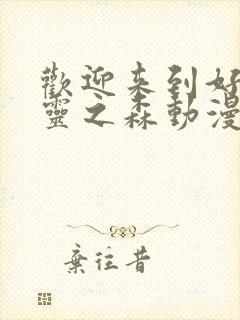 歡迎来到好
靈之森動漫
棄往昔